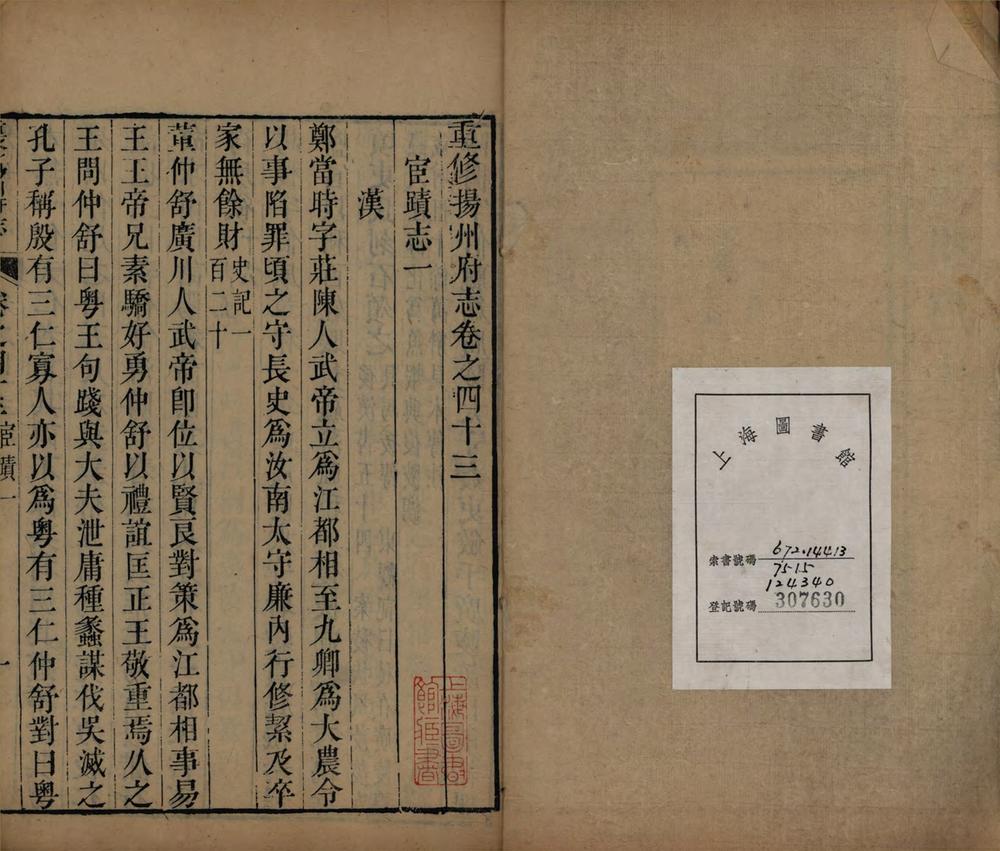 重修揚州府志卷之四十三
宦蹟志一
漢
鄭當時字莊陳人武帝立爲江都相至九卿爲大農令
以事陷罪頃之守長史爲汝南太守廉內行修絜及卒
家無餘財史記一百二十
董仲舒廣川人武帝卽位以賢良對策爲江都相事易
王王帝兄素驕好勇仲舒以禮誼匡正王敬重焉乆之
王問仲舒曰粤王句踐與大夫泄庸種蠡謀伐吳滅之
孔子稱殷有三仁寡人亦以爲粤有三仁仲舒對曰粤
宦蹟一
一
上海圖書館藏書
上海圖書館
索書號碼 672.14413
7515
124340
登記號碼 307630